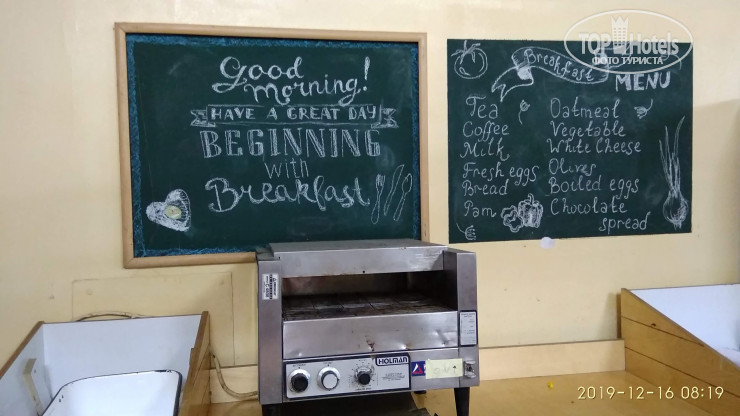 Good
morning!
HAVE A GREAT DAY
BEGINNING
with
Breakfast
Breakfast
MENU
Tea
Coffee
Milk
Fresh eggs
Bread
Pam
Oatmeal
Vegetable
White Cheese
Olives
Boiled eggs
Chocolate
spread
TOPHotels
ФОТО ТУРИСТА
HOLMAN
2019-12-16 08:19